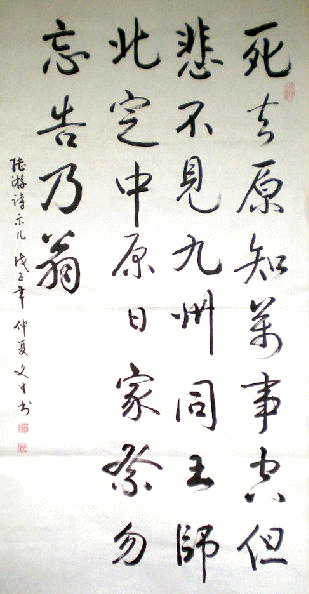 死去原知萬事空但
悲不見九州同王師
北定中原日家祭勿
忘告乃翁
陸游詩示儿 戊子年仲夏 文生书